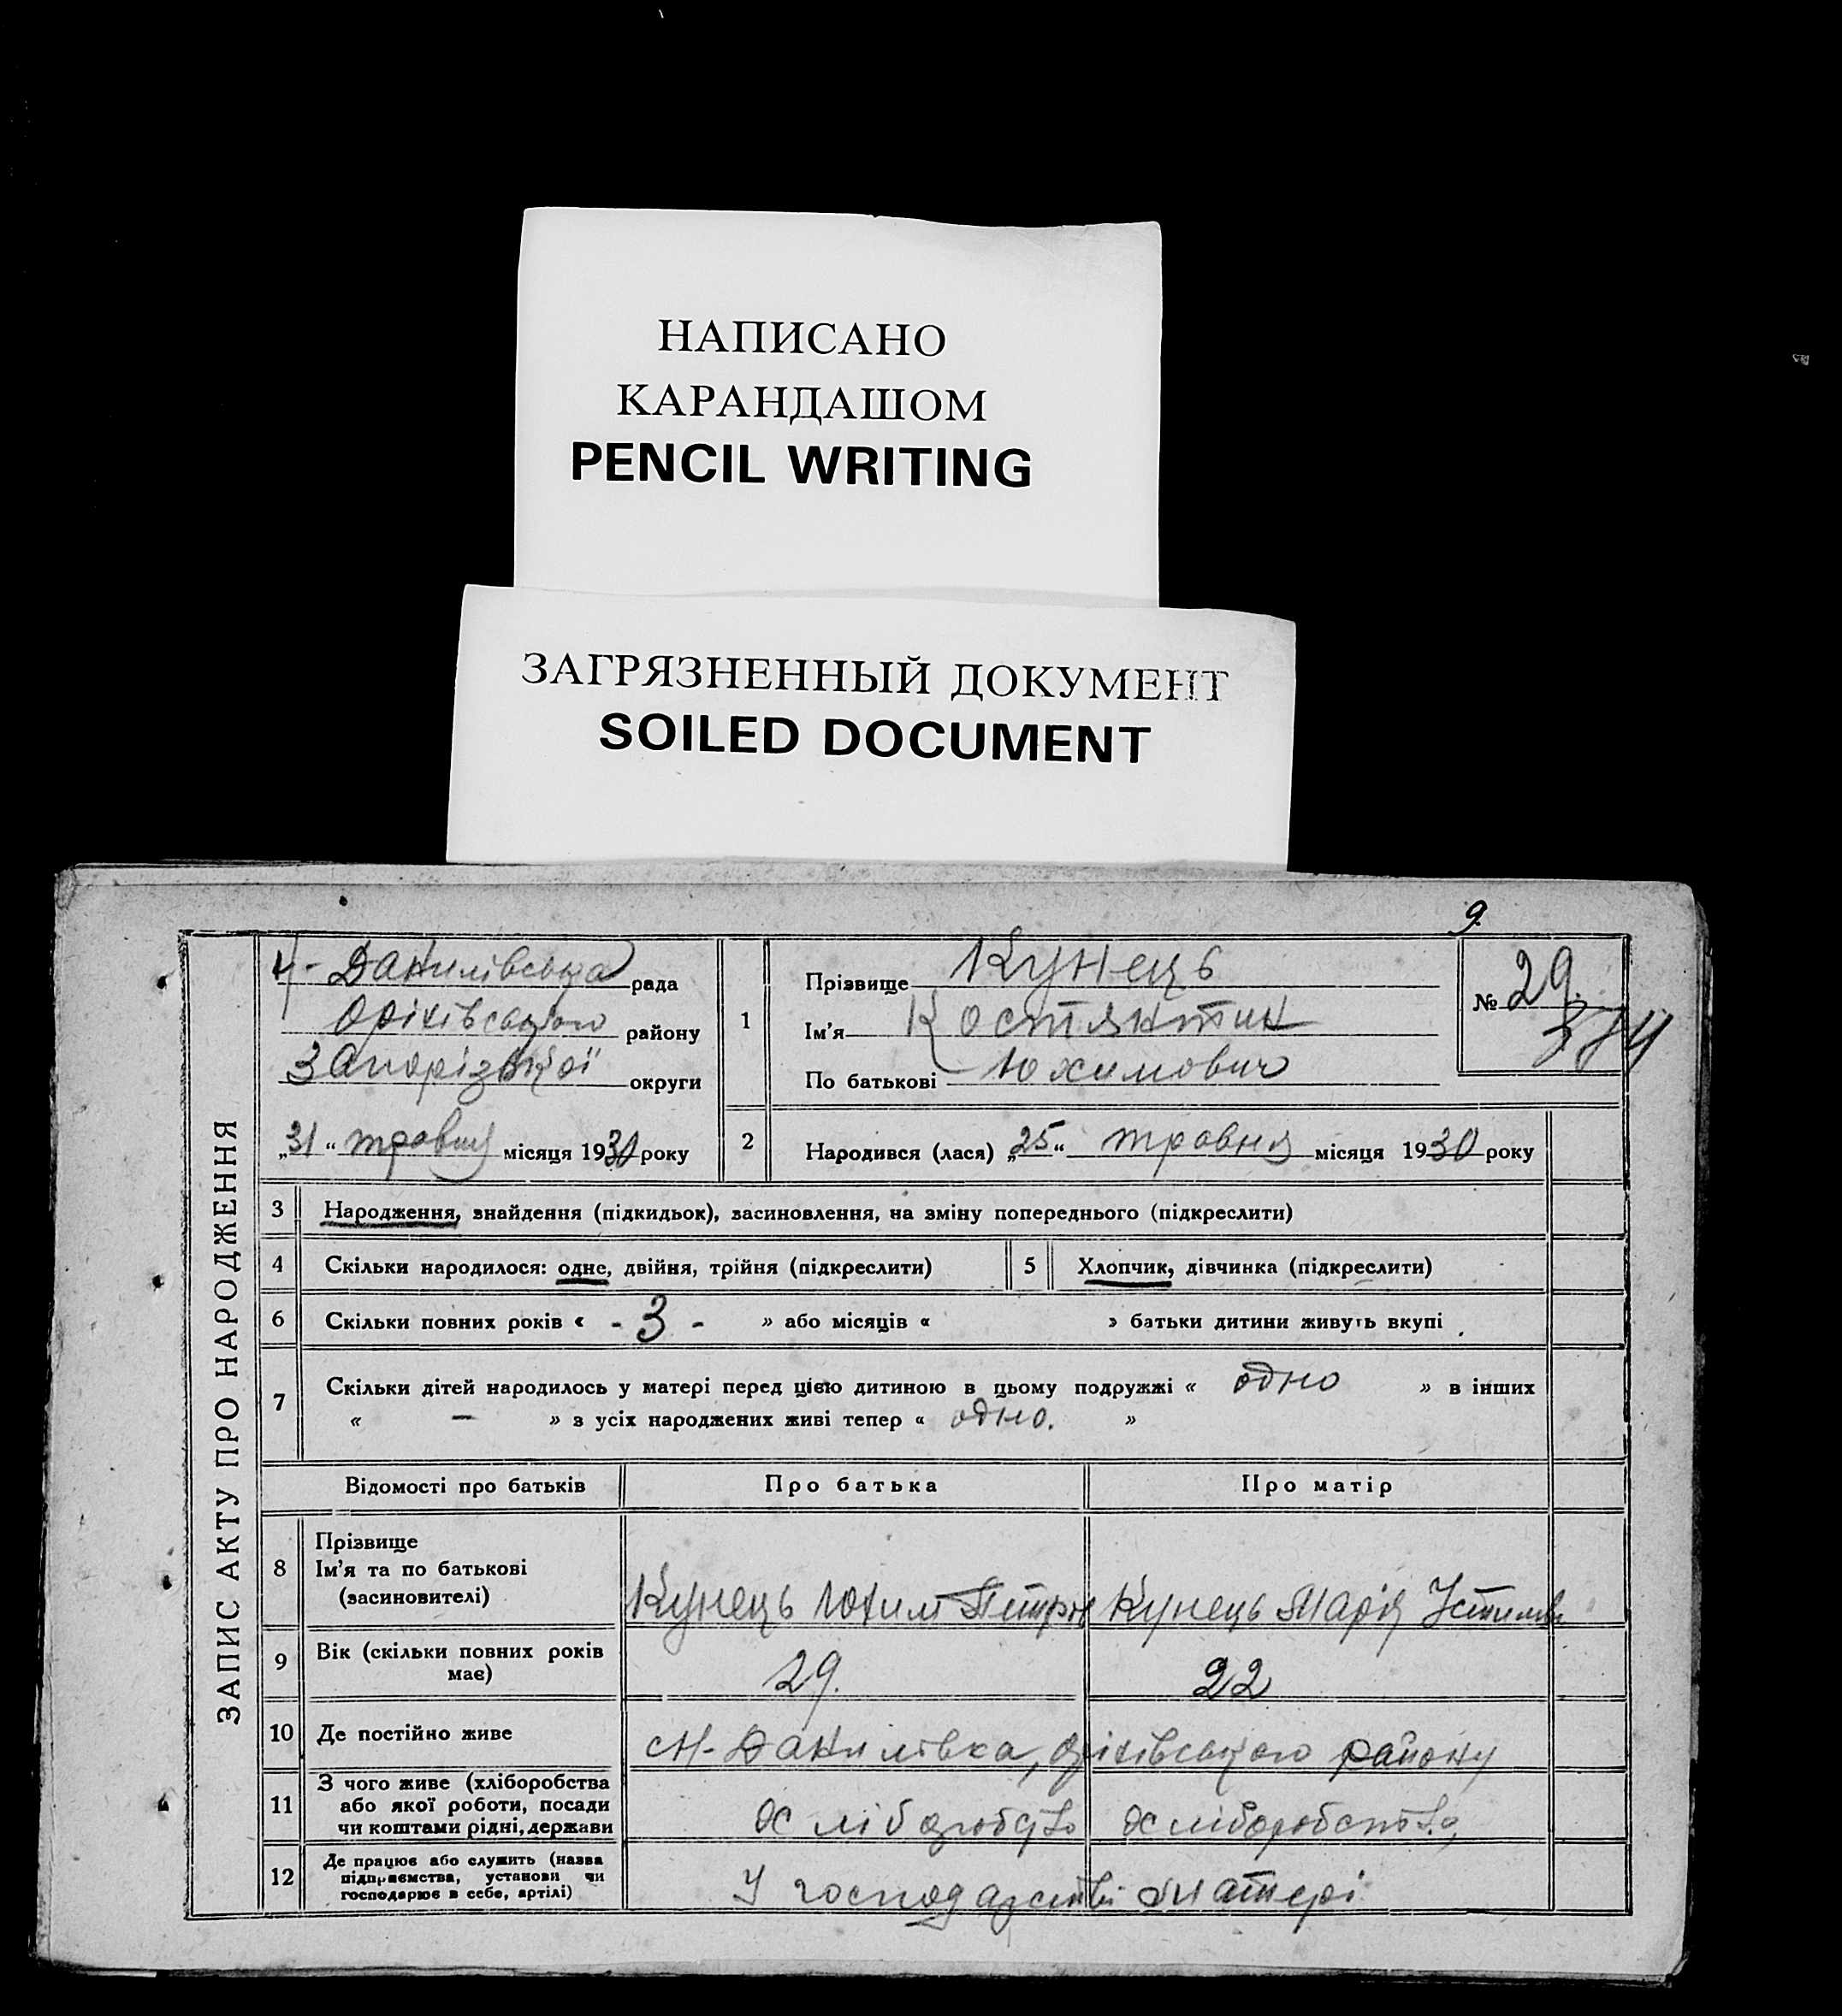 НАПИСАНО
КАРАНДАШОМ
PENCIL WRITING
ЗАГРЯЗНЕННЫЙ ДОКУМЕНТ
SOILED DOCUMENT
9.
ЗАПИС АКТУ ПРО НАРОДЖЕННЯ
Данилівська рада
Оріхівського району
Запорізької округи
„31“ травня місяця 1930 року
1
Прізвище Кунець
Ім'я Костянтин
По батькові Юхимович
№ 29.
2 Народився (лася) „25“ травня місяця 1930 року
3 Народження, знайдення (підкидьок), засиновлення, на зміну попереднього (підкреслити)
4 Скільки народилося: одне, двійня, трійня (підкреслити) 5 Хлопчик, дівчинка (підкреслити)
6 Скільки повних років « - 3 - » або місяців « » батьки дитини живуть вкупі
7 Скільки дітей народилось у матері перед цією дитиною в цьому подружжі « одно » в інших
« — » з усіх народжених живі тепер « одно. »
Відомості про батьків Про батька Про матір
8 Прізвище
Ім'я та по батькові
(засиновителі)
Кунець Юхим Петров Кунець Марія
9 Вік (скільки повних років
має)
29. 22
10 Де постійно живе
Данилівка, Оріхівського району
11 З чого живе (хліборобства
або якої роботи, посади
чи коштами рідні, держави
хліборобство хліборобство
12 Де працює або служить (назва
підприємства, установи чи
господарює в себе, артілі)
У господарстві матері